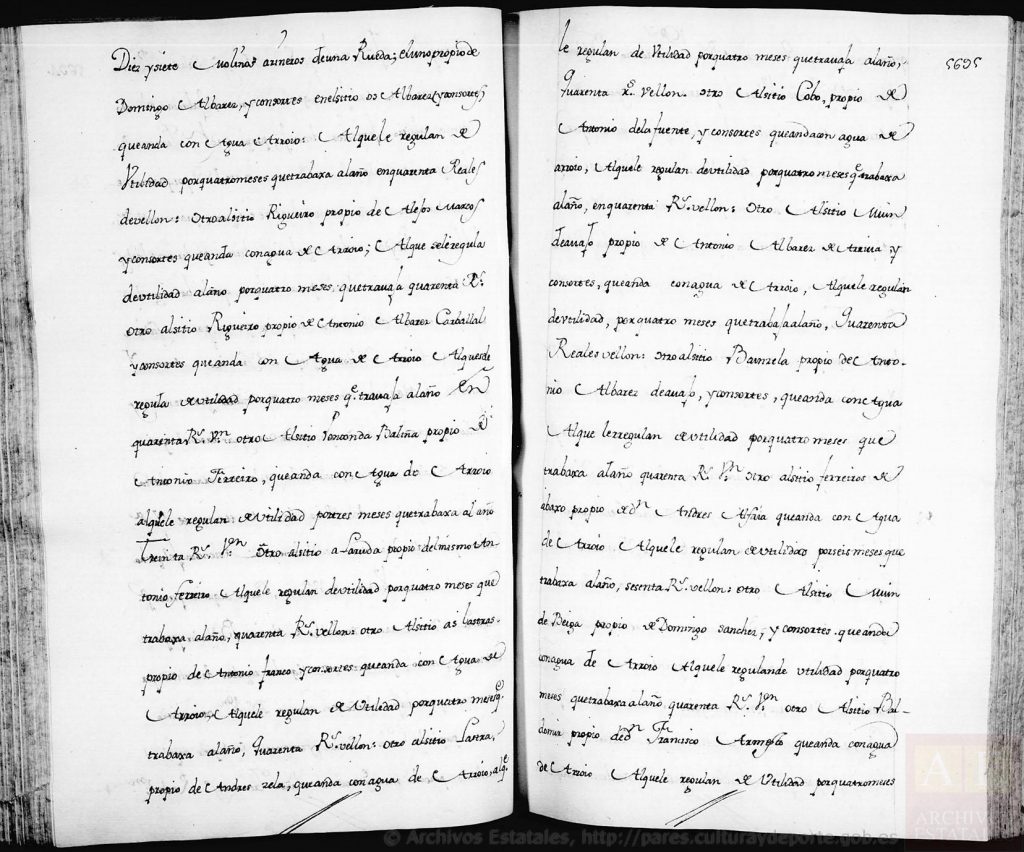 Diez y siete Molinos arineros de una Rueda; el uno propio de
Domingo Albarez, y consortes en el sitio os Albarez (y consortes)
que anda con Agua Arroio: Al que le regulan de
Vtilidad por quatro meses que trabaxa al año en quarenta Reales
de vellon: otro al sitio Rigueiro propio de Marcos
y consortes que anda con agua de Arroio; Al que se le regula
de vtilidad al año por quatro meses, que travaja quarenta Rs.
otro al sitio Rigueiro propio de Antonio Albarez Carballal
y consortes que anda con Agua de Arroio Al que se le
regula de vtilidad por quatro meses qe. travaja al año En
quarenta Rs. Vn. otro Al sitio Baliña propio de
Antonio Ferreiro, que anda con Agua de Arroio
al que le regulan de Vtilidad por tres meses que trabaxa al año
Treinta Rs. Vn. Otro al sitio a propio del mismo An-
tonio ferreiro Al que le regulan de vtilidad por quatro meses que
trabaxa, al año, quarenta Rs. vellon: otro Al sitio as lastras-
propio de Antonio franco y consortes que anda con Agua de
Arroio, Al que le regulan de Vtilidad por quatro meses q.
trabaxa al año, quarenta Rs. vellon: otro al sitio Lastra,
propio de Andres rela, que anda con agua de Arroio, al qe.
le regulan de Vtilidad por quatro meses que travaja al año,
quarenta rs. Vellon. otro Al sitio Cobo, propio de
Antonio de la fuente, y consortes que anda con agua de
arroio, Al que le regulan de vtilidad por quatro meses qe. trabaxa
al año, en quarenta Rs. vellon: otro Al sitio Muin
deavajo propio de Antonio Albarez de Arriva y
consortes, que anda con agua de Arroio, Al que le regulan
de vtilidad, por quatro meses que trabaja al año, quarenta
Reales vellon: otro al sitio propio de Anto-
nio Albarez deavajo, y consortes, que anda con Agua
Al que le rregulan de vtilidad por quatro meses que
trabaxa al año quarenta Rs. Vn. otro al sitio ferreiros de
abaxo propio de Dn. Andres que anda con Agua
de Arroio Al que le regulan de vtilidad por seis meses que
trabaxa al año, sesenta Rs. vellon: otro Al sitio Muin
de Beiga propio de Domingo Sanchez, y consortes que anda
con agua de Arroio Al que le regulan de vtilidad por quatro
meses que trabaxa al año, quarenta Rs. Vn. otro Al sitio Bal-
propio de dn. Francisco que anda con agua
de Arroio Al que le regulan de Vtilidad por quatro meses
5695
© Archivos Estatales, http://pares.culturaydeporte.gob.es
AE
ARCHIVOS
ESTATALES